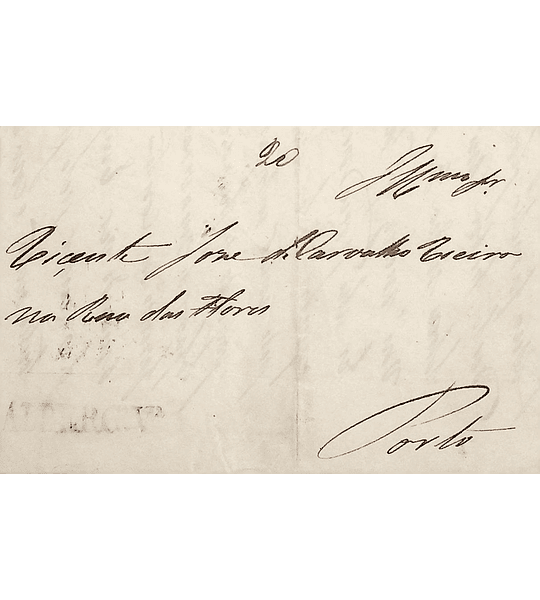 20
Illmo Sr.
Viçente Joze de Carvalho Vieira
na Rua das Flores
Porto